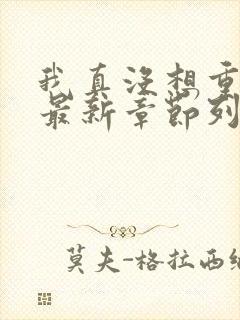 我真没想重
最新章节列
莫夫-格拉西